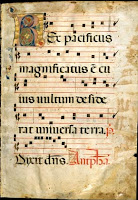 Rex pacificus
magnificatus ē cu
ius uultum deside
rat uniuersa terra. p̄
Dixit dn̄s. Anipho